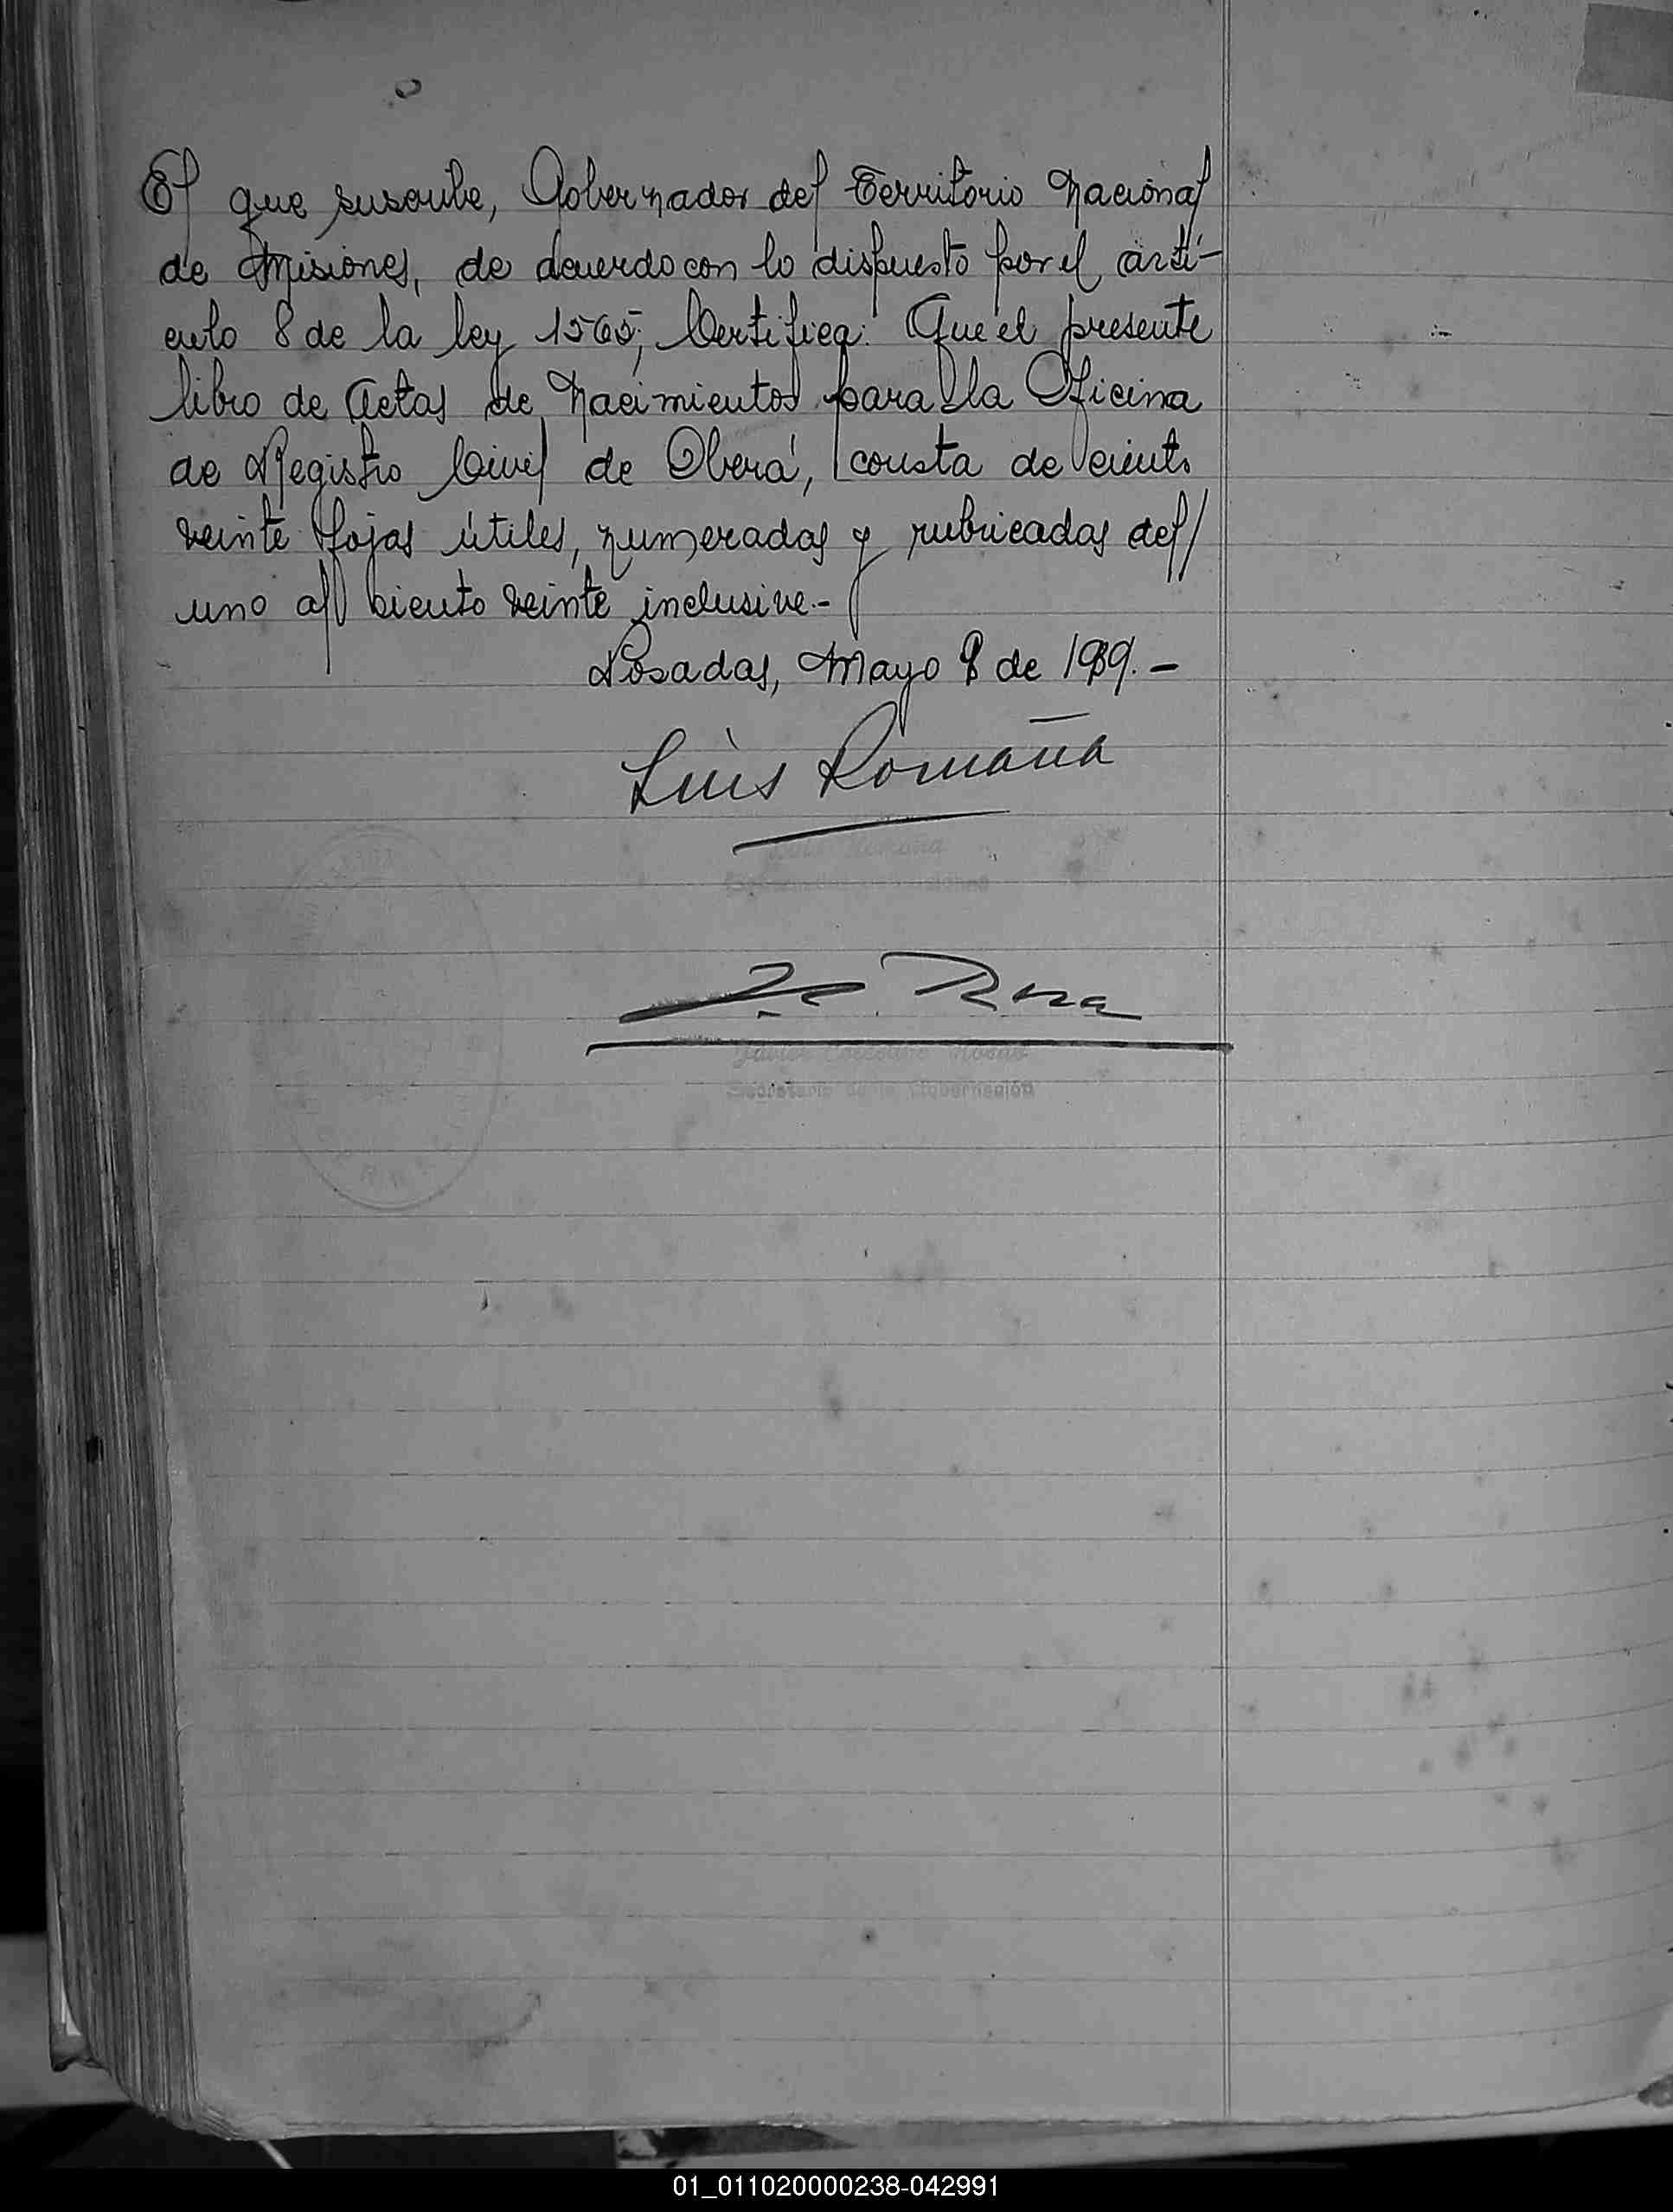 El que suscribe, Gobernador del Territorio Nacional
de Misiones, de acuerdo con lo dispuesto por el artí-
culo 8 de la ley 1565; Certifica: Que el presente
libro de Actas de Nacimientos para la Oficina
de Registro Civil de Oberá, consta de ciento
veinte fojas útiles, numeradas y rubricadas del//
uno al ciento veinte inclusive.-
Posadas, Mayo 8 de 1939.-
Luis Romaña
Luis Romaña
Secretario de la Gobernación
01_011020000238-042991